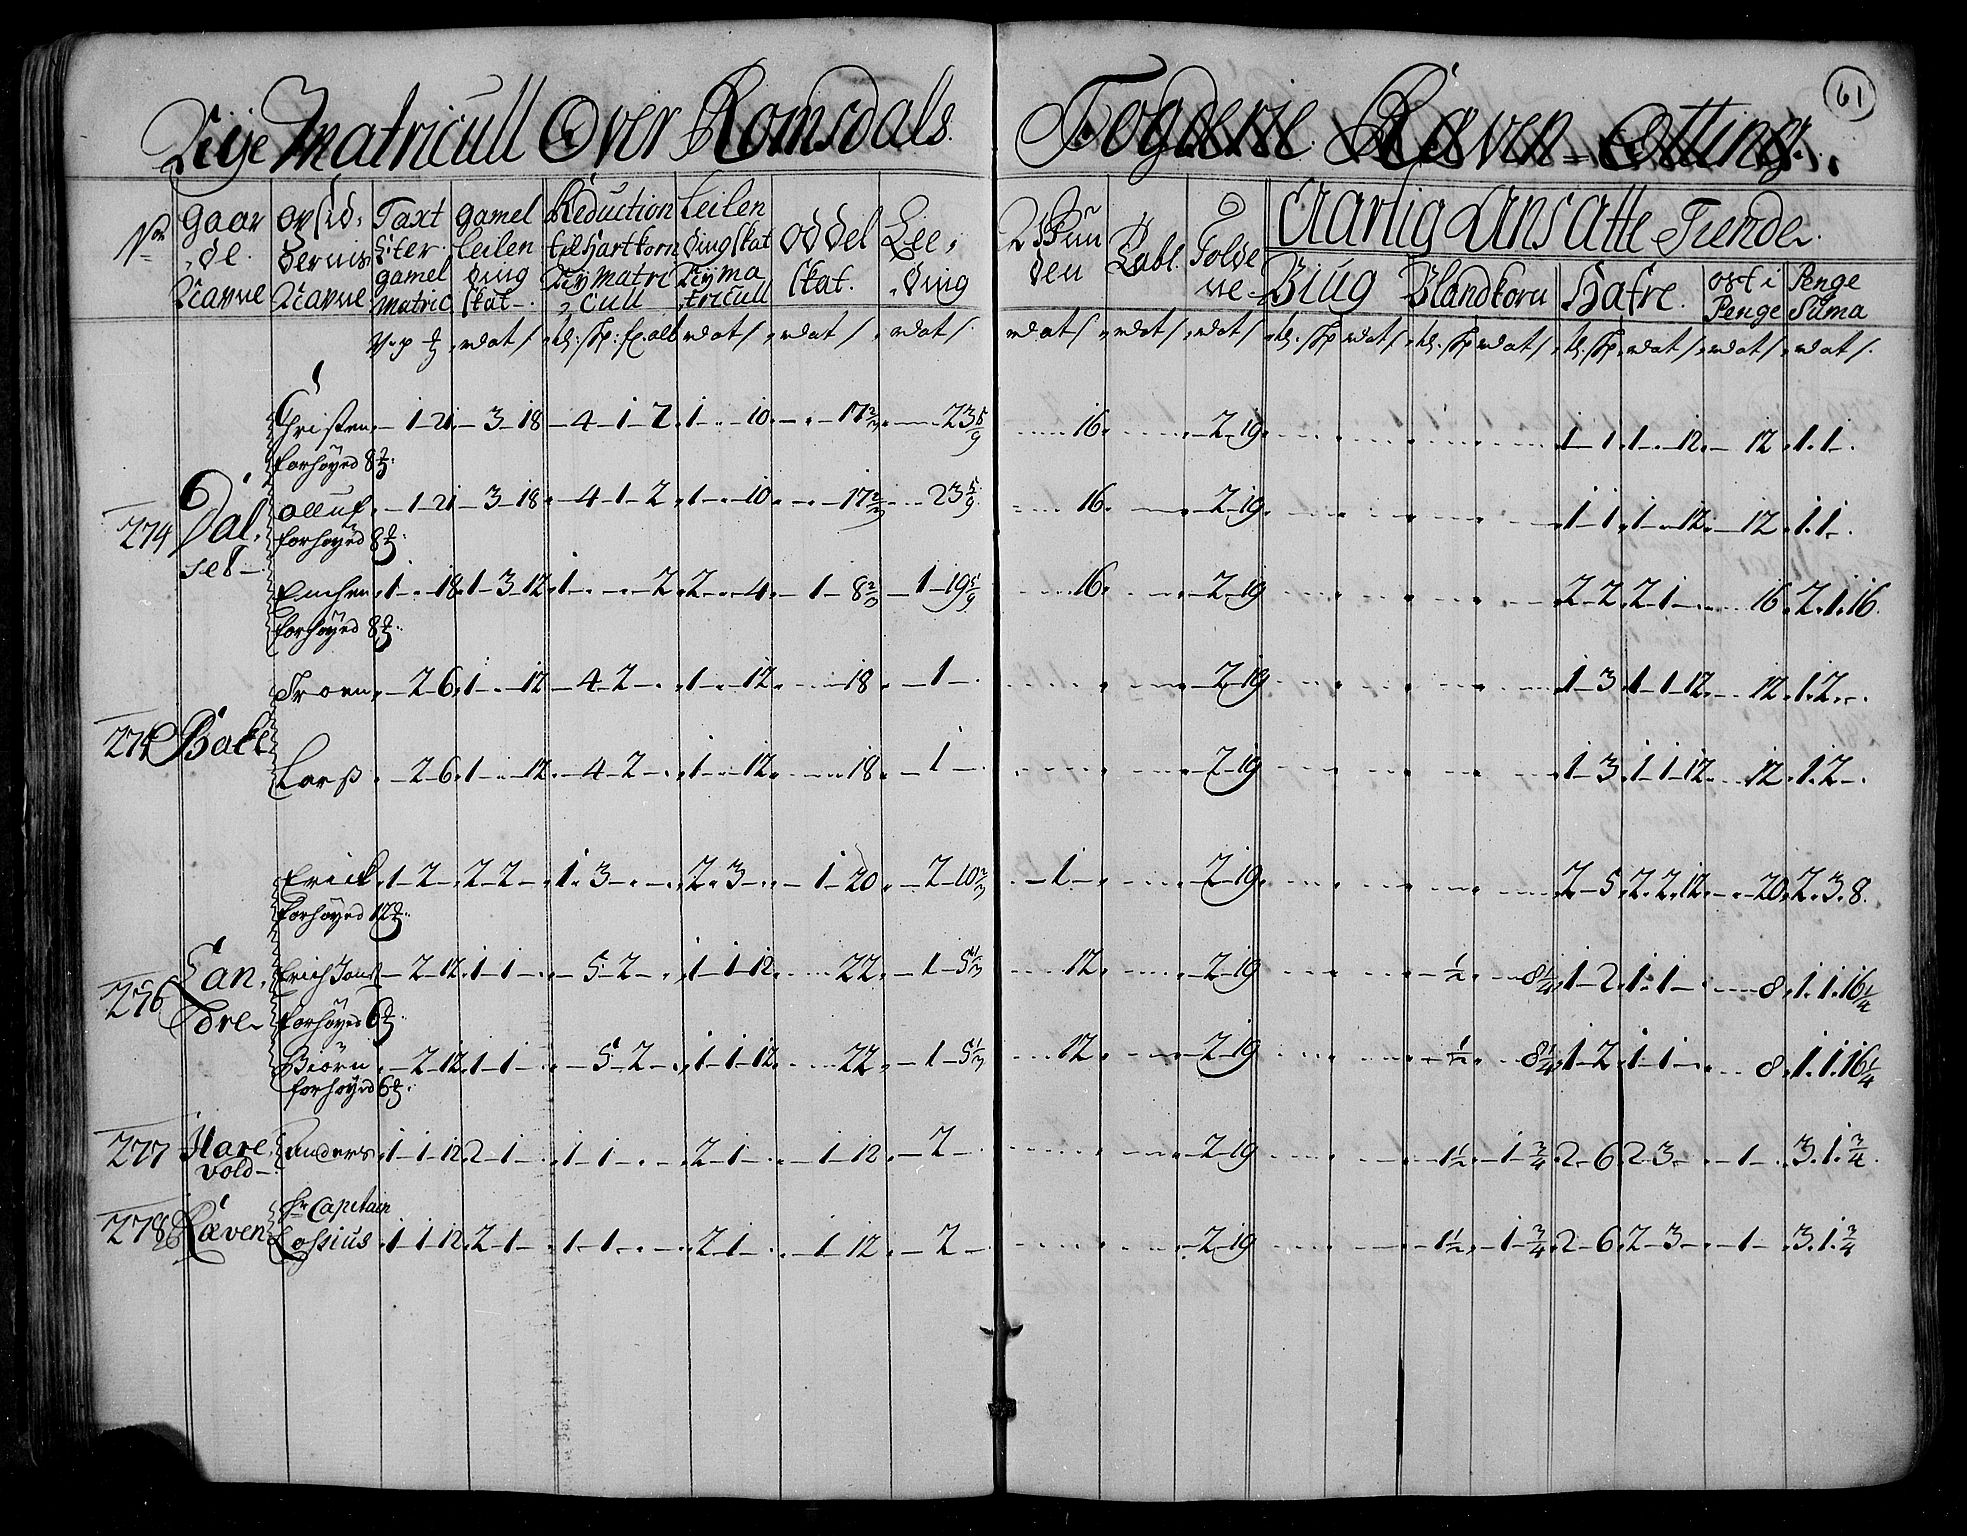 61
Nÿe Matricull Over Romsdals. Fogderie. Ræven=Otting.
No Gaardenes Navne opsid, dernis Navne Taxt Efter gamel Matric gamel Leilending skat Reduction til Hartkorn Ny Matricull Leilending skat Ny Matricull oddel skat. Leeding Wun den Babl. Tolde ne Aarlig Ansatte Tiende.
Biug Blandkorn Hafre. ost i Penge Penge Suma
Christen 1-21 3-18 4-1-2 1--10 17 2/3 23 5/9 16 2-19 1-1 1--12 12 1.1.
forhøyed 8
274 Dal,set Olluf 1-21 3-18 4-1-2 1--10 17 2/3 23 5/9 16 2-19 1-1 1--12 12 1.1.
forhøyed 8
1--18 1-3-12 1---2 2--4 1-8 1-19 5/9 16 2-19 2-2 2-1 16 2.1.16.
forhøyed 8
2-6 1--12 4-2 1--12 18 1 2-19 1-3 1-1-12 12 1.2
Bake Lars 2-6 1--12 4-2 1--12 18 1 2-19 1-3 1-1-12 12 1.2
Erick 1-2 2-2 1-3 2-3 1-20 2-10 2/3 1 2-19 2-5 2-2-12 20 2.3.8.
forhøyed 12
276 Lan,dre Erich Jons 2-12 1-1 5-2 1-1-12 22 1-5 1/3 12 2-19 1/2 8 1/4 1-2 1-1 8 1.1.16 1/4
forhøyed 6
Biørn 2-12 1-1 5-2 1-1-12 22 1-5 1/3 12 2-19 1/2 8 1/4 1-2 1-1 8 1.1.16 1/4
forhøyed 6
277 Hare,vold Anders 1-1-12 2-1 1-1 2-1 1-12 2 2-19 1 1/2 1 3/4 2-6 2-3 1 3.1. 3/4
Hr Capitain
278 Ræven Lossius 1-1-12 2-1 1-1 2-1 1-12 2 2-19 1 1/2 1 3/4 2-6 2-3 1 3.1. 3/4